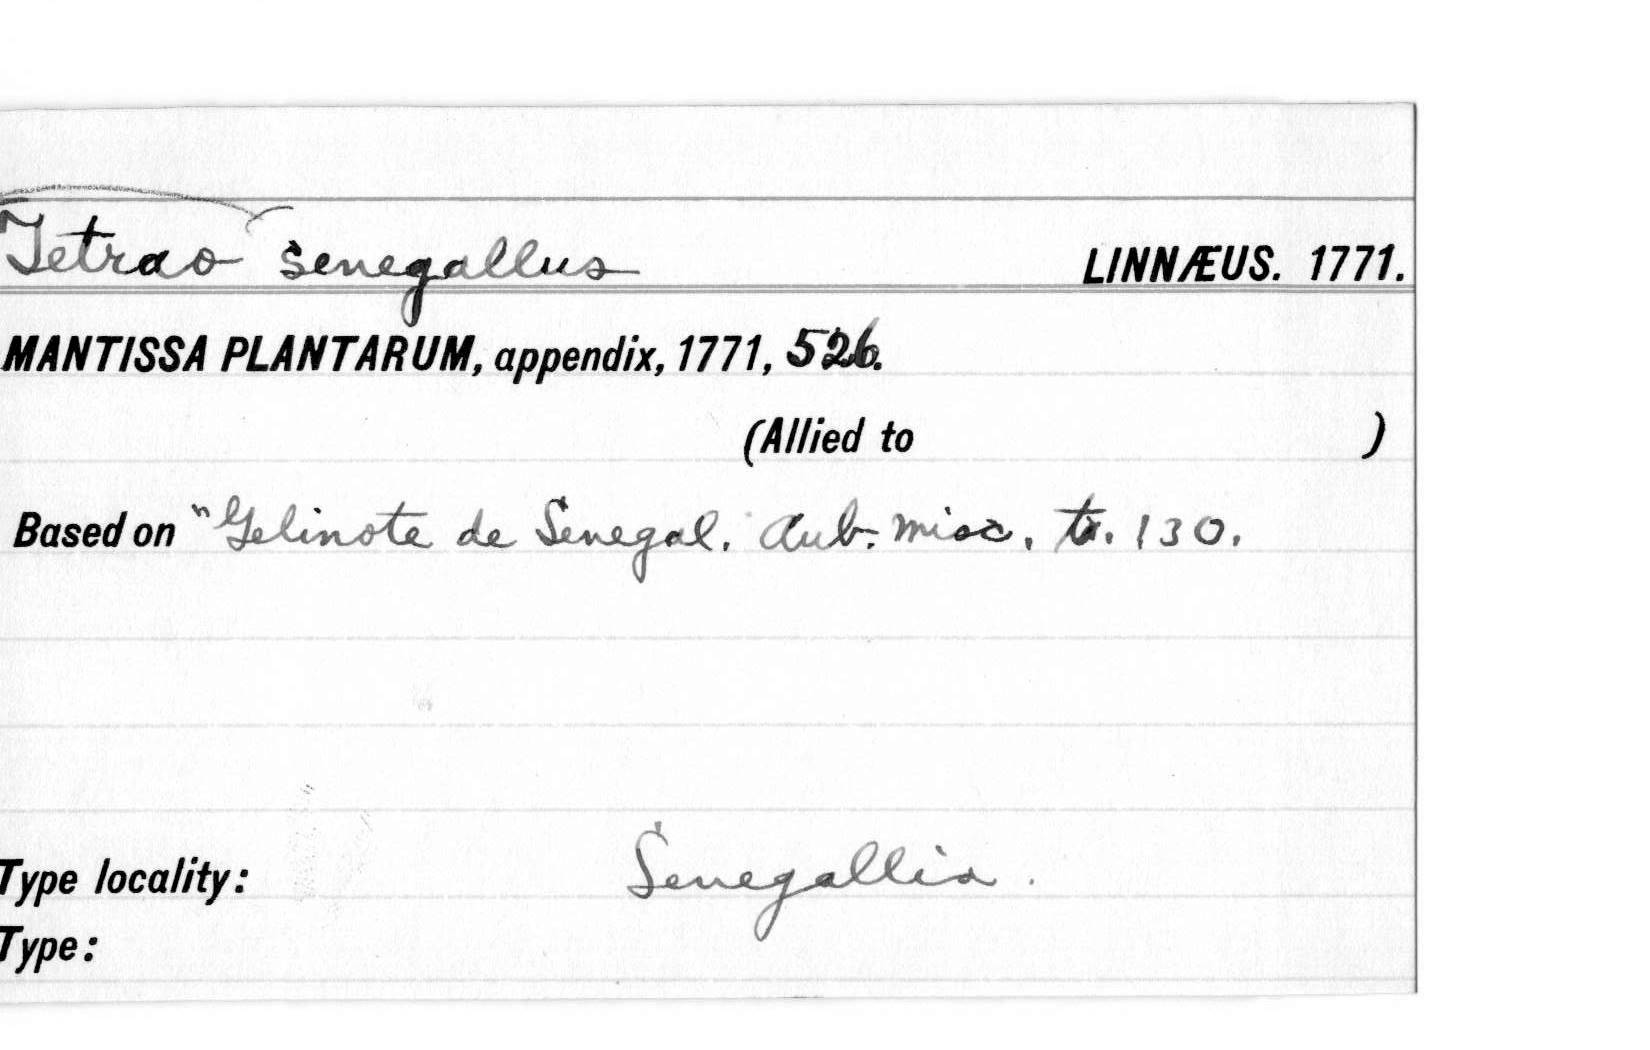 Tetrao senegallus LINNÆUS. 1771.
MANTISSA PLANTARUM, appendix, 1771, 526.
(Allied to )
Based on "Gelinote de Senegal. Aub. misc. t. 130.
Type locality: Senegallia.
Type: